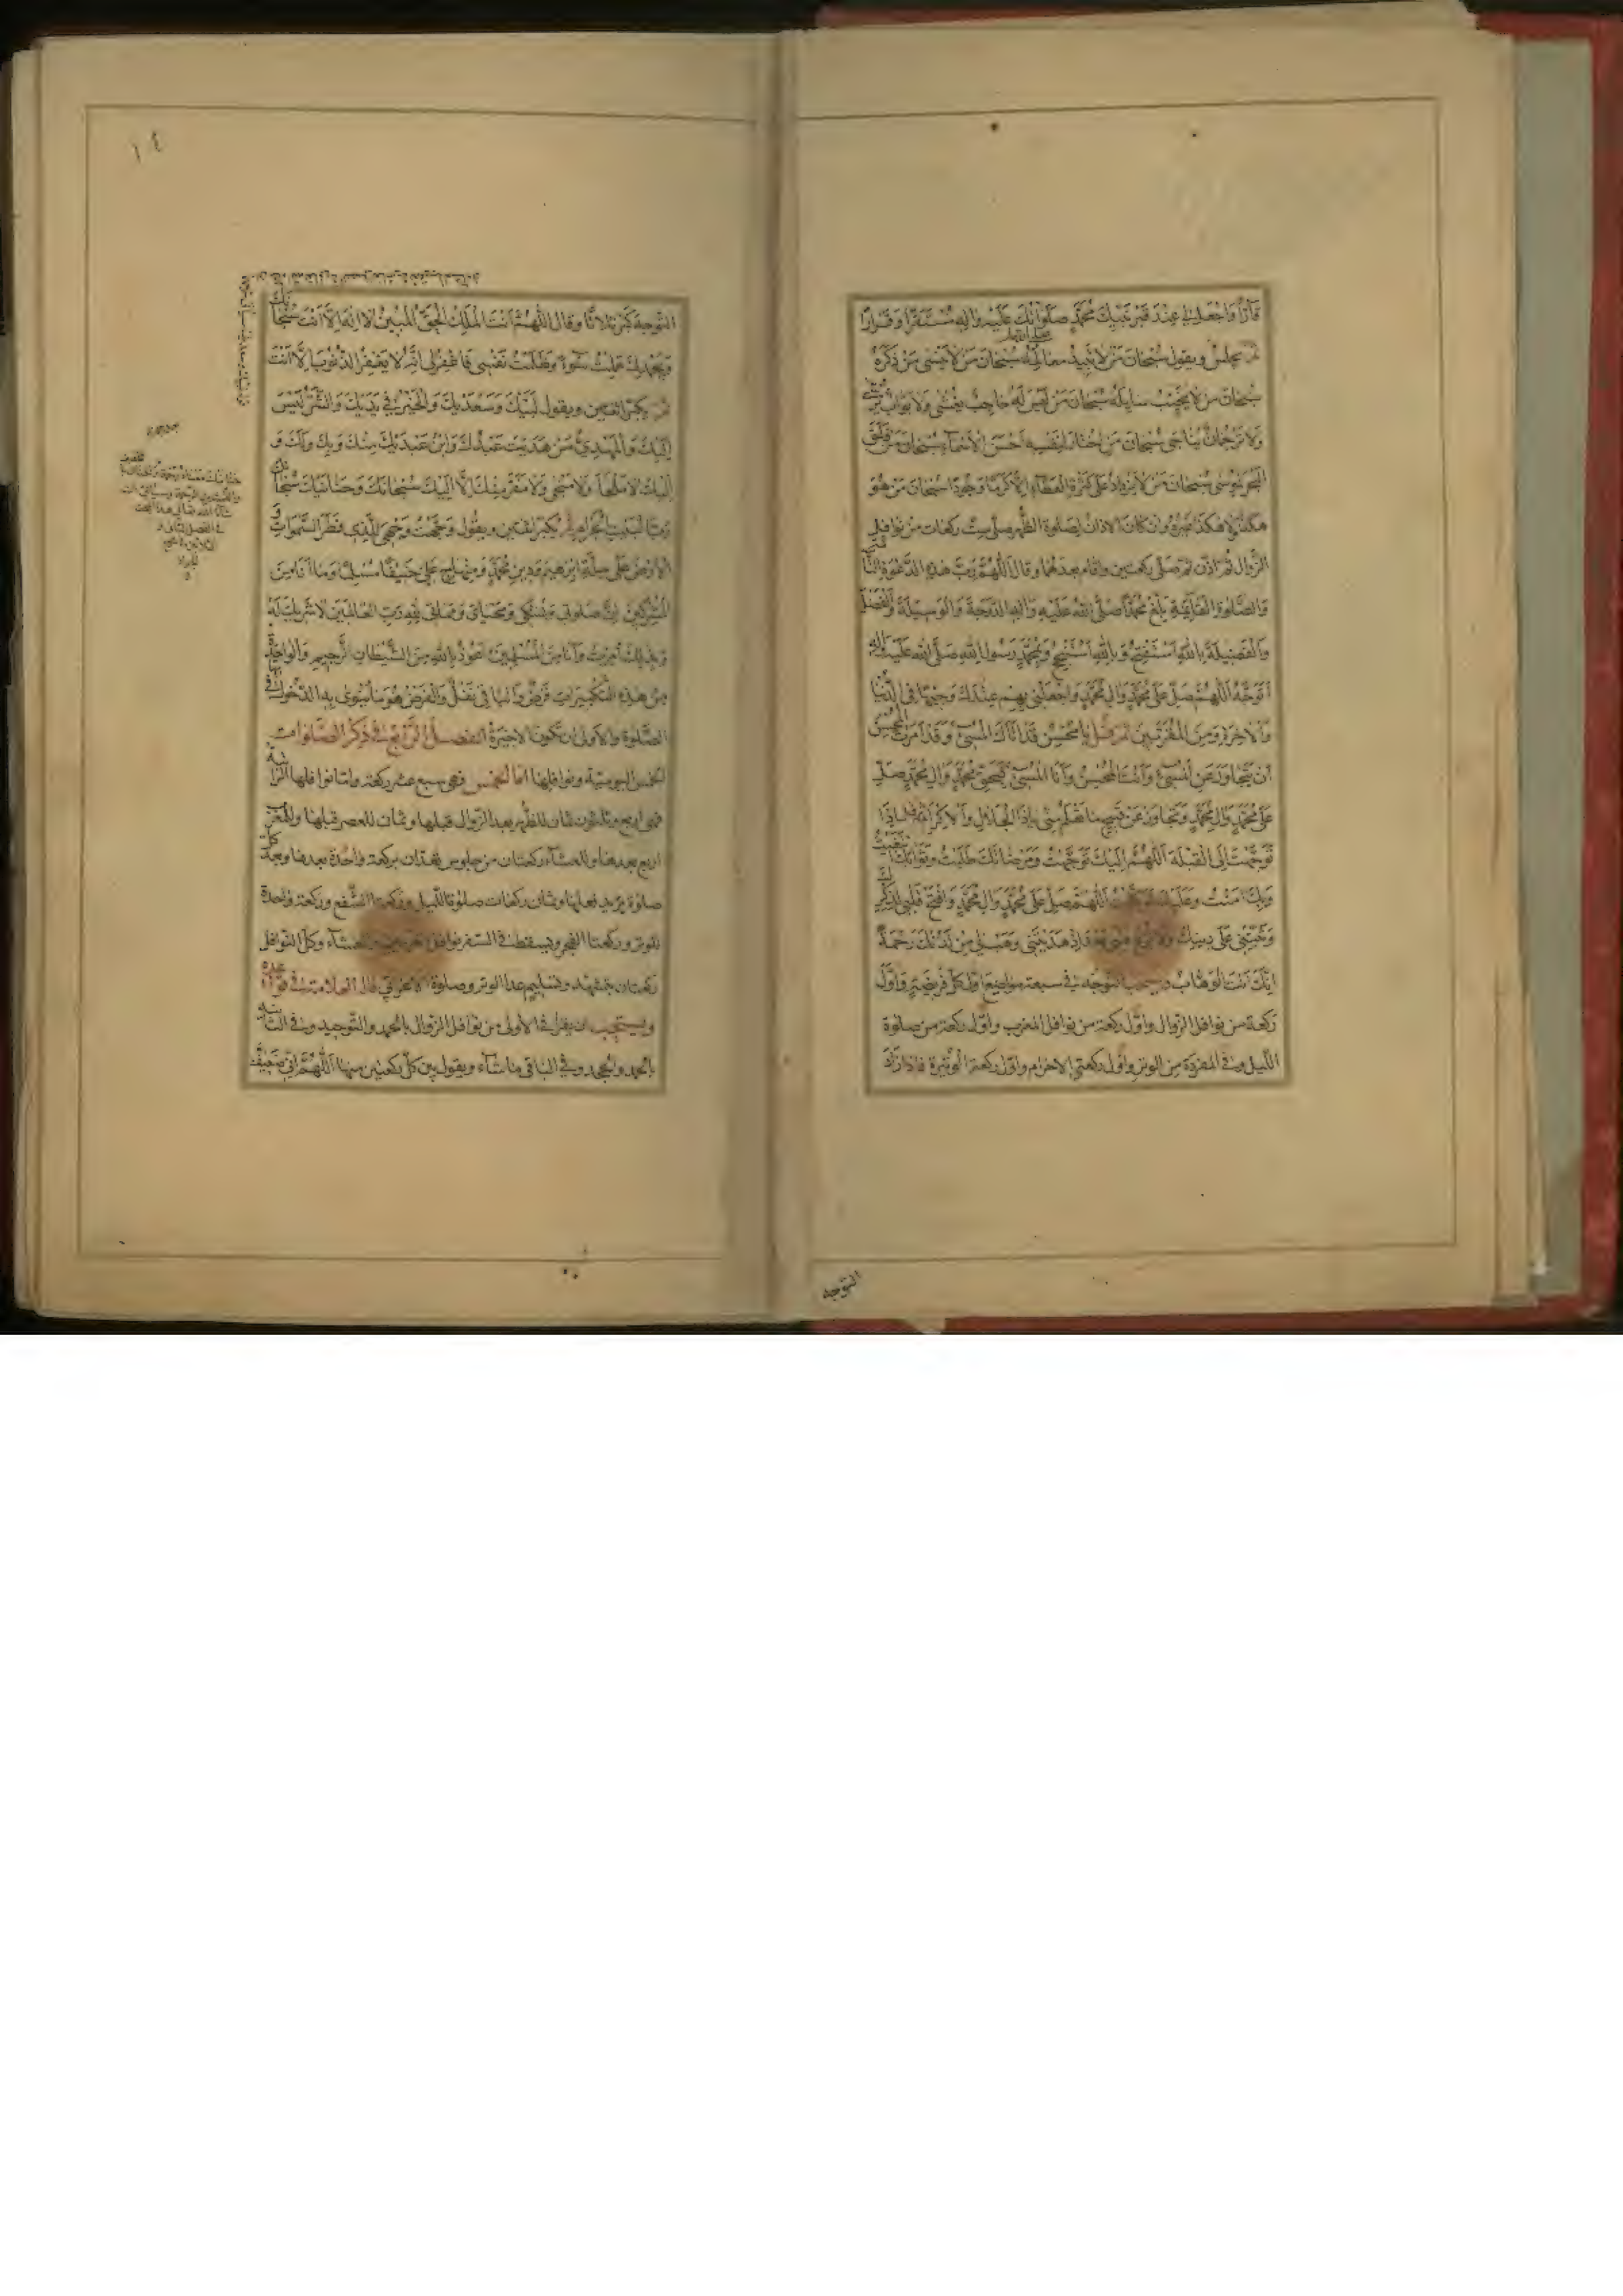 قَارًّا وَاجْعَلْ لِي عِنْدَ قَبْرِ نَبِيِّكَ مُحَمَّدٍ صَلَوَاتُكَ عَلَيْهِ وَالِهِ مُسْتَقَرًّا وَقَرَارًا
ثم يجلس ويقول سُبْحَانَ مَنْ لَا تَبِيدُ مَعَالِمُهُ سُبْحَانَ مَنْ لَا يَنْسَى مَنْ ذَكَرَهُ
سُبْحَانَ مَنْ لَا يُخَيِّبُ سَائِلَهُ سُبْحَانَ مَنْ لَيْسَ لَهُ حَاجِبٌ يُغْشَى وَلَا بَوَّابٌ يُرْشَى
وَلَا تَرْجُمَانٌ يُنَاجَى سُبْحَانَ مَنِ اخْتَارَ لِنَفْسِهِ أَحْسَنَ الْأَسْمَاءِ سُبْحَانَ مَنْ فَلَقَ
الْبَحْرَ لِمُوسَى سُبْحَانَ مَنْ لَا يَزْدَادُ عَلَى كَثْرَةِ الْعَطَاءِ إِلَّا كَرَمًا وَجُودًا سُبْحَانَ مَنْ هُوَ
هٰكَذَا وَلَا هٰكَذَا غَيْرُهُ وان كان الاذان لصلوة الظهر صلى ست ركعات من نوافل
الزوال ثم اذن ثم صلى ركعتين واقام بعدهما وقال اَللّٰهُمَّ رَبَّ هٰذِهِ الدَّعْوَةِ التَّامَّةِ
وَالصَّلٰوةِ الْقَائِمَةِ بَلِّغْ مُحَمَّدًا صَلَّى اللهُ عَلَيْهِ وَالِهِ الدَّرَجَةَ وَالْوَسِيلَةَ وَالْفَضْلَ
وَالْفَضِيلَةَ بِاللهِ أَسْتَفْتِحُ وَبِاللهِ أَسْتَنْجِحُ وَبِمُحَمَّدٍ رَسُولِ اللهِ صَلَّى اللهُ عَلَيْهِ وَالِهِ
أَتَوَجَّهُ اَللّٰهُمَّ صَلِّ عَلَى مُحَمَّدٍ وَالِ مُحَمَّدٍ وَاجْعَلْنِي بِهِمْ عِنْدَكَ وَجِيهًا فِي الدُّنْيَا
وَالْاٰخِرَةِ وَمِنَ الْمُقَرَّبِينَ ثم قل يَا مُحْسِنُ قَدْ أَتَاكَ الْمُسِيءُ وَقَدْ أَمَرْتَ الْمُحْسِنَ
أَنْ يَتَجَاوَزَ عَنِ الْمُسِيءِ وَأَنْتَ الْمُحْسِنُ وَأَنَا الْمُسِيءُ فَبِحَقِّ مُحَمَّدٍ وَالِ مُحَمَّدٍ صَلِّ
عَلَى مُحَمَّدٍ وَالِ مُحَمَّدٍ وَتَجَاوَزْ عَنْ قَبِيحِ مَا تَعْلَمُ مِنِّي يَا ذَا الْجَلَالِ وَالْإِكْرَامِ فاذا
توجهت الى القبلة اَللّٰهُمَّ إِلَيْكَ تَوَجَّهْتُ وَمَرْضَاتَكَ طَلَبْتُ وَثَوَابَكَ ابْتَغَيْتُ
وَبِكَ اٰمَنْتُ وَعَلَيْكَ تَوَكَّلْتُ اَللّٰهُمَّ صَلِّ عَلَى مُحَمَّدٍ وَالِ مُحَمَّدٍ وَافْتَحْ قَلْبِي لِذِكْرِكَ
وَثَبِّتْنِي عَلَى دِينِكَ وَلَا تُزِغْ قَلْبِي بَعْدَ إِذْ هَدَيْتَنِي وَهَبْ لِي مِنْ لَدُنْكَ رَحْمَةً
إِنَّكَ أَنْتَ الْوَهَّابُ ويستحب التوجه في سبعة مواضع اول كل فريضة واول
ركعة من نوافل الزوال واول ركعة من نوافل المغرب واول ركعة من صلوة
الليل وفي المفردة من الوتر واول ركعتي الاحرام واول ركعة الوتيرة فاذا اراد
التوجه
١٤
التوجه كبر ثلاثا وقال اَللّٰهُمَّ أَنْتَ الْمَلِكُ الْحَقُّ الْمُبِينُ لَا إِلٰهَ إِلَّا أَنْتَ سُبْحَانَكَ
وَبِحَمْدِكَ عَمِلْتُ سُوءًا وَظَلَمْتُ نَفْسِي فَاغْفِرْ لِي إِنَّهُ لَا يَغْفِرُ الذُّنُوبَ إِلَّا أَنْتَ
ثم يكبر اثنتين ويقول لَبَّيْكَ وَسَعْدَيْكَ وَالْخَيْرُ فِي يَدَيْكَ وَالشَّرُّ لَيْسَ
إِلَيْكَ وَالْمَهْدِيُّ مَنْ هَدَيْتَ عَبْدُكَ وَابْنُ عَبْدَيْكَ مِنْكَ وَبِكَ وَلَكَ وَ
إِلَيْكَ لَا مَلْجَأَ وَلَا مَنْجَى وَلَا مَفَرَّ مِنْكَ إِلَّا إِلَيْكَ سُبْحَانَكَ وَحَنَانَيْكَ سُبْحَانَكَ
رَبَّ الْبَيْتِ الْحَرَامِ ثم يكبر اثنتين ويقول وَجَّهْتُ وَجْهِيَ لِلَّذِي فَطَرَ السَّمٰوَاتِ وَ
الْأَرْضَ عَلَى مِلَّةِ إِبْرٰهِيمَ وَدِينِ مُحَمَّدٍ وَمِنْهَاجِ عَلِيٍّ حَنِيفًا مُسْلِمًا وَمَا أَنَا مِنَ
الْمُشْرِكِينَ إِنَّ صَلٰوتِي وَنُسُكِي وَمَحْيَايَ وَمَمَاتِي لِلّٰهِ رَبِّ الْعَالَمِينَ لَا شَرِيكَ لَهُ
وَبِذٰلِكَ أُمِرْتُ وَأَنَا مِنَ الْمُسْلِمِينَ أَعُوذُ بِاللهِ مِنَ الشَّيْطَانِ الرَّجِيمِ والواحدة
من هذه التكبيرات فرض والباقي نفل والفرض هو ما ينوى به الدخول في
الصلوة والاولى ان تكون الاخيرة الفصل الرابع في ذكر الصلوات
الخمس اليومية ونوافلها اما الخمس فهي سبع عشر ركعة واما نوافلها الراتبة
فهي اربع وثلاثون ثمان للظهر بعد الزوال قبلها وثمان للعصر قبلها وللمغرب
اربع بعدها وللعشاء ركعتان من جلوس تعدان بركعة واحدة بعدها وبعد كل
صلوة يريد فعلها وثمان ركعات صلوة الليل وركعتا الشفع وركعة واحدة
للوتر وركعتا الفجر ويسقط في السفر نوافل الظهرين والعشاء وكل النوافل
ركعتان بتشهد وتسليم عدا الوتر وصلوة الاعرابي قال العلامة في قواعده
ويستحب ان يقرا في الاولى من نوافل الزوال بالحمد والتوحيد وفي الثانية
بالحمد والجحد وفي الباقي ما شاء ويقول بين كل ركعتين منها اَللّٰهُمَّ إِنِّي ضَعِيفٌ